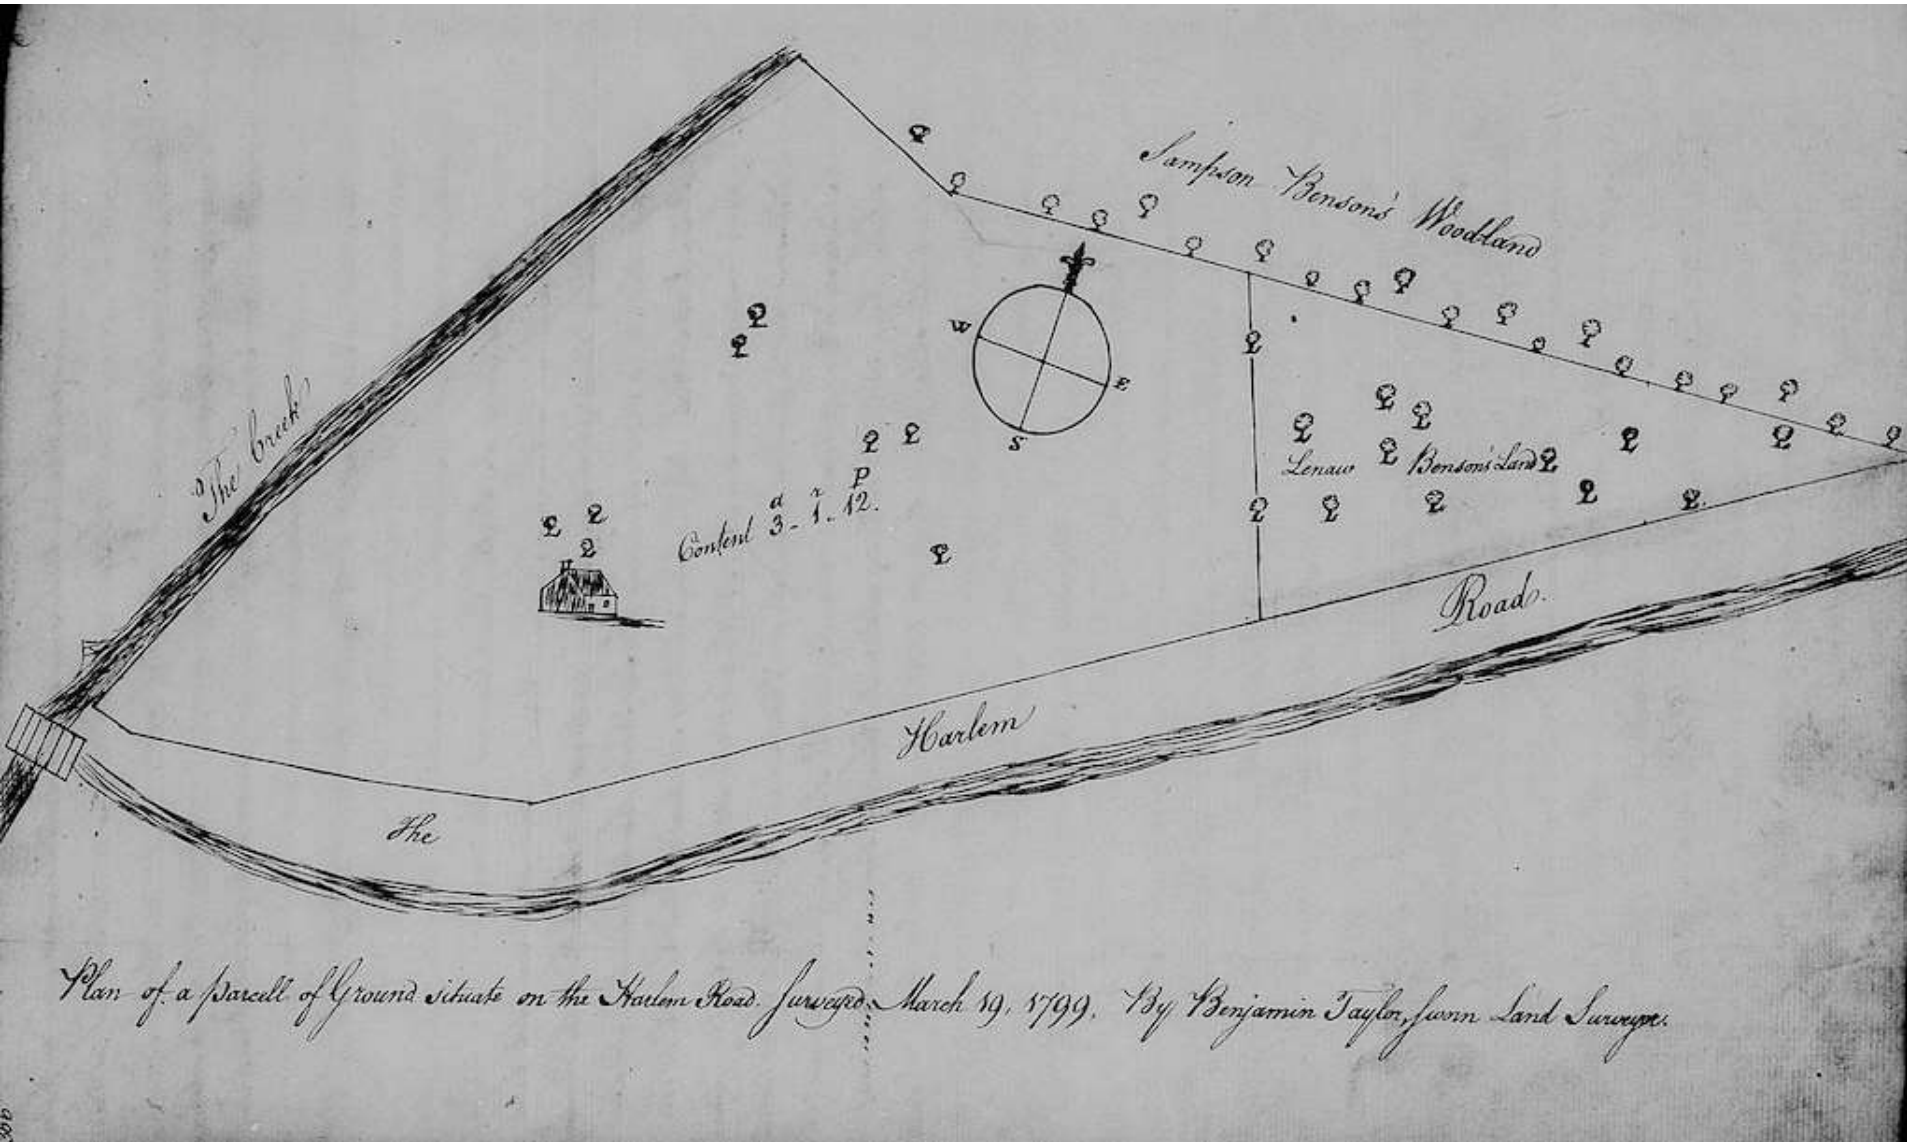 Sampson Benson's Woodland
The Creek
W
E
S
Lenaw Benson's Land
a r p
Content 3 - 1 - 12.
The Harlem Road.
Plan of a parcell of Ground situate on the Harlem Road. Surveyed March 19, 1799. By Benjamin Taylor, sworn Land Surveyor.